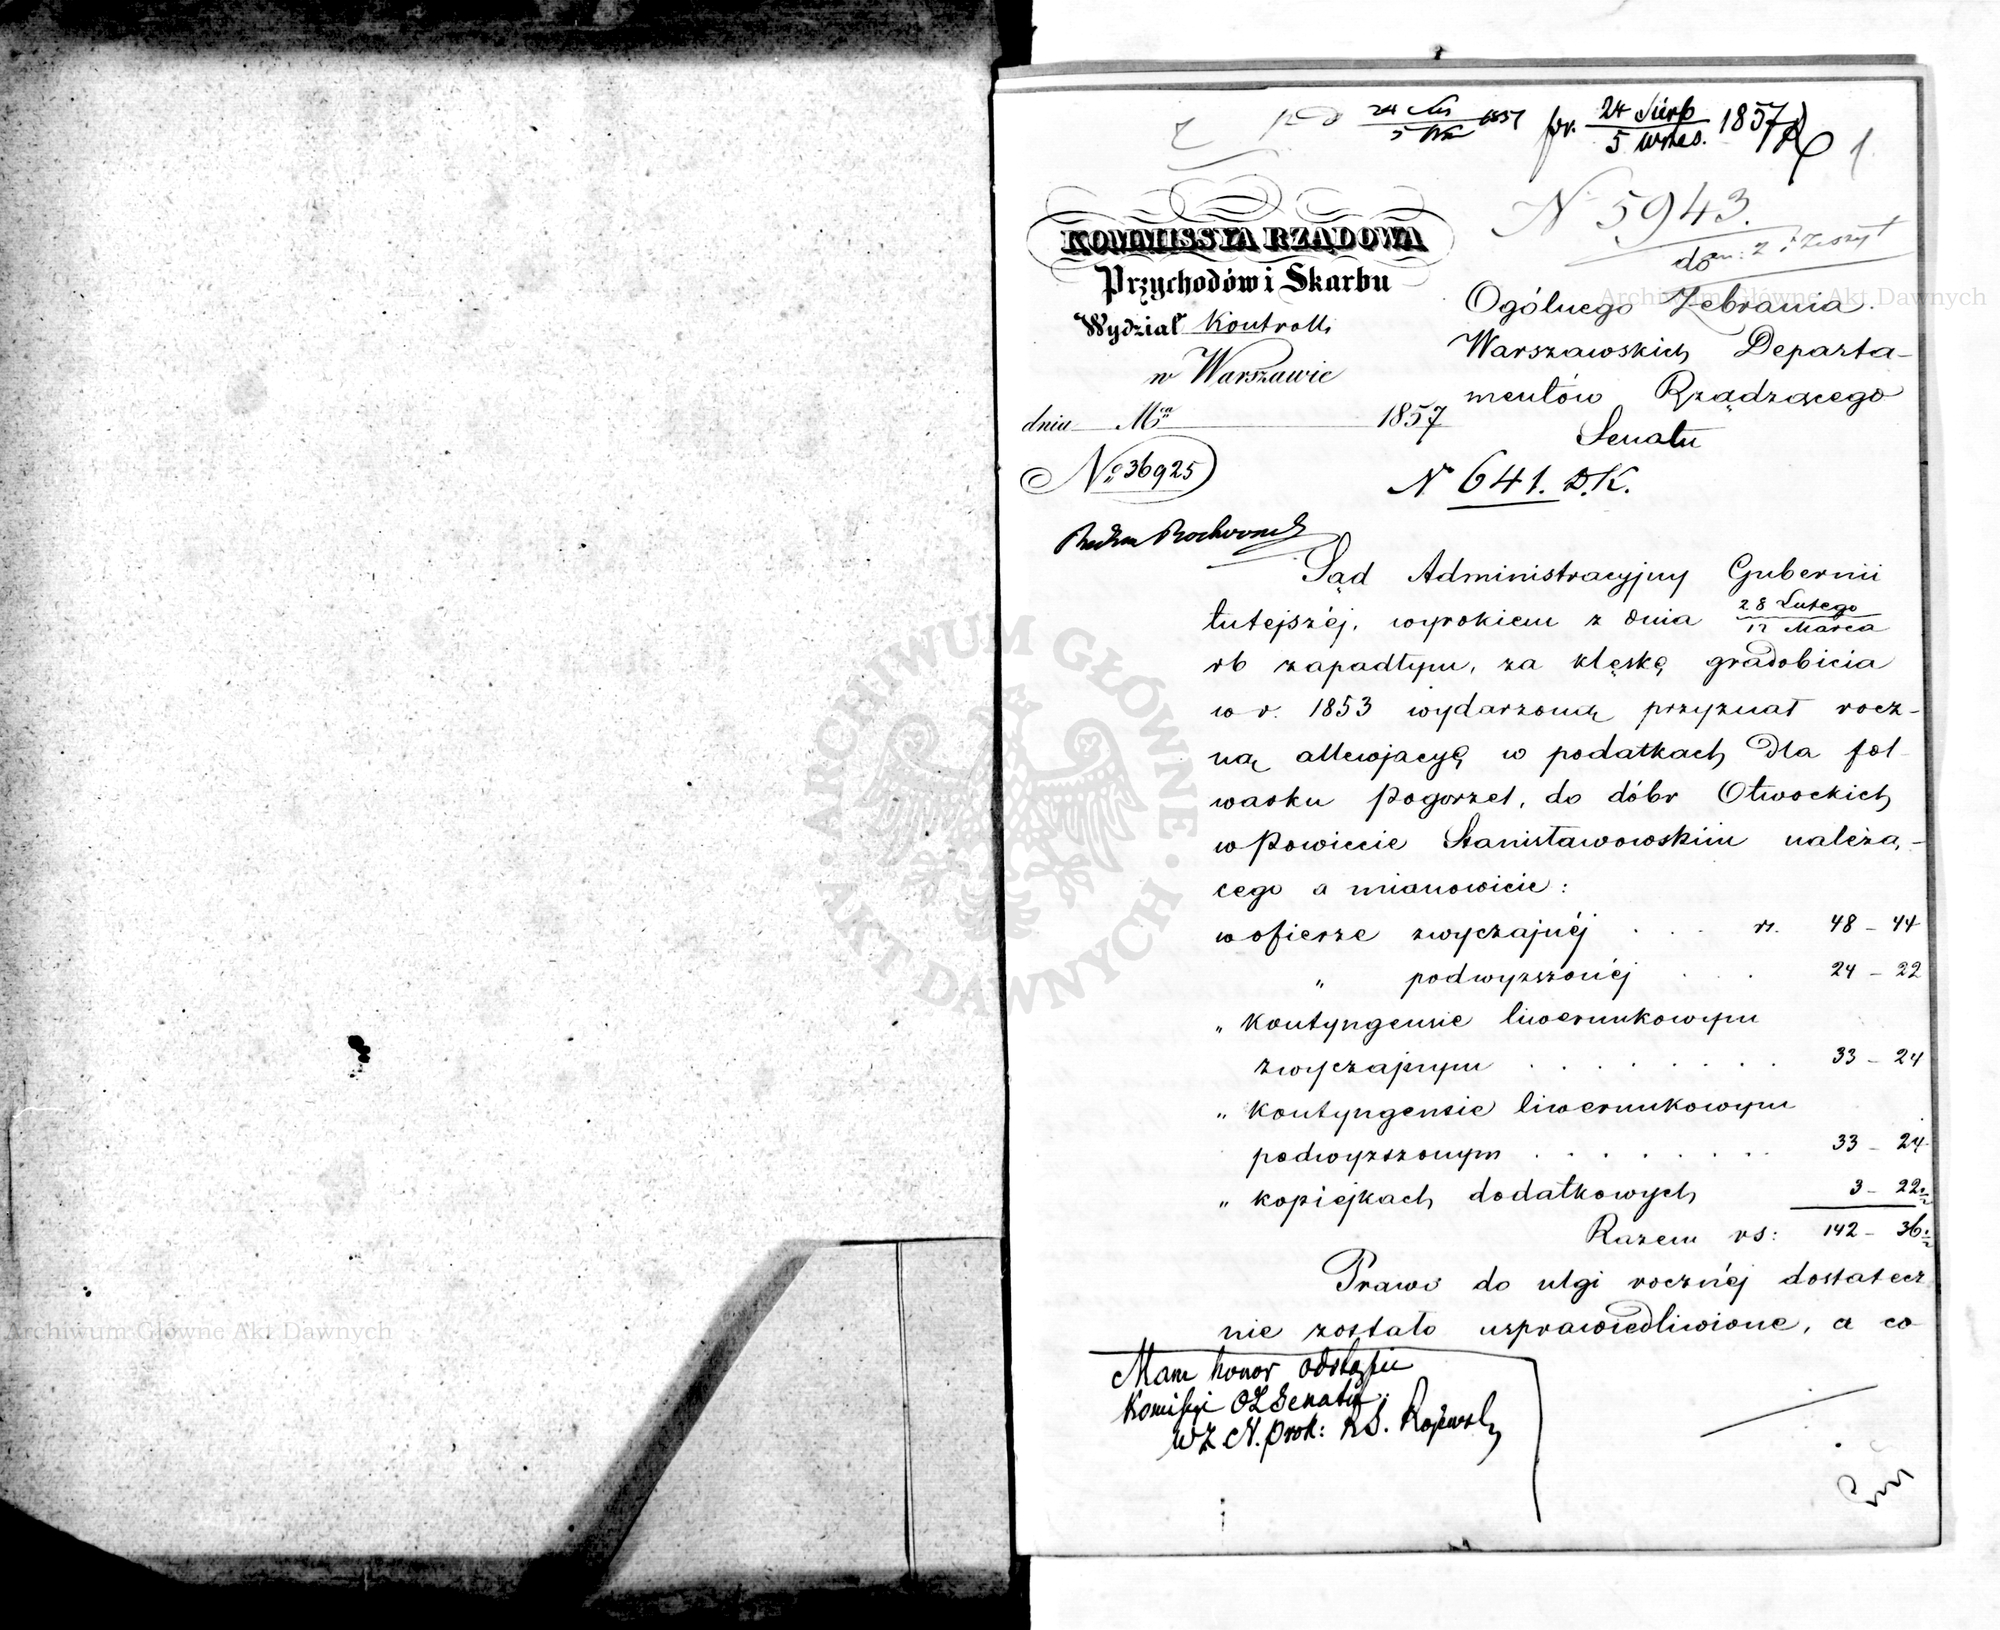 pr. 24 Sierp / 5 Wrześ. 1857 1
N 5943.
KOMMISSYA RZĄDOWA
Przychodów i Skarbu
Wydział Kontrolli
w Warszawie
dnia Mca 1857
No 36925
do
Ogólnego Zebrania
Warszawskich Departa-
mentów Rządzącego
Senatu
N 641. D.K.
Sąd Administracyjny Gubernii
tutejszéj, wyrokiem z dnia 28 Lutego / 12 Marca
rb zapadłym, za klęskę gradobicia
w r. 1853 wydarzoną przyznał rocz-
ną allewjacyę w podatkach dla fol-
warku Pogorzel, do dóbr Otwockich
w Powiecie Stanisławowskim należą-
cego a mianowicie:
w ofierze zwyczajnéj . . . rs. 48 – 44
" podwyższonéj . . 24 – 22
" kontyngensie liwerunkowym
zwyczajnym . . . . . . . . 33 – 24
" kontyngensie liwerunkowym
podwyższonym . . . . . . . 33 – 24
" kopiejkach dodatkowych 3 – 22½
Razem rs: 142 – 36½
Prawo do ulgi rocznéj dostatecz
nie zostało usprawiedliwione, a co
Mam honor odstąpić
Komisyi OZ Senatu
WZ N. Prok:
Archiwum Główne Akt Dawnych
Archiwum Główne Akt Dawnych
ARCHIWUM GŁÓWNE · AKT DAWNYCH ·